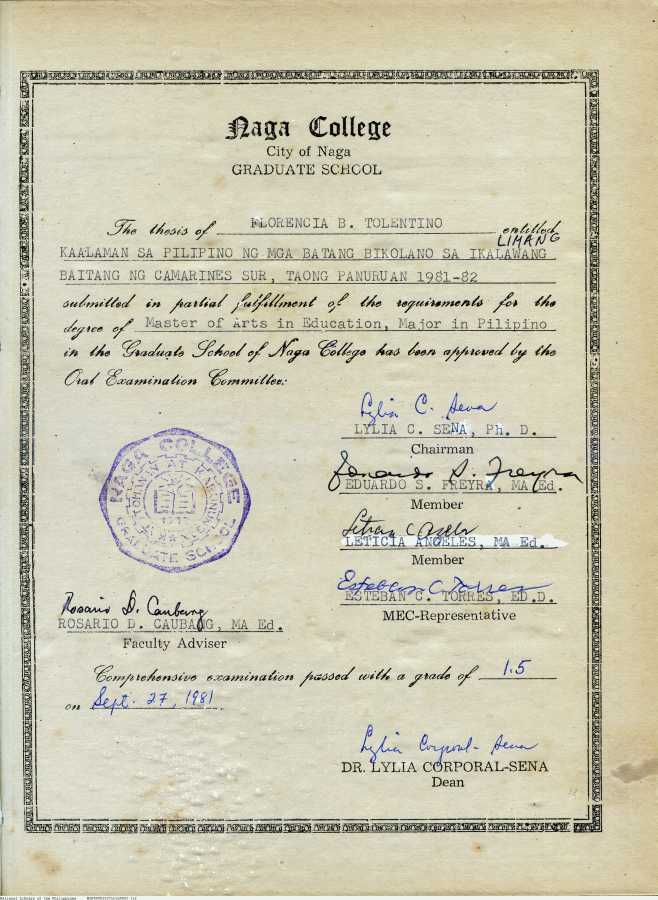 Naga College
City of Naga
GRADUATE SCHOOL
The thesis of FLORENCIA B. TOLENTINO entitled
LIMANG
KAALAMAN SA PILIPINO NG MGA BATANG BIKOLANO SA IKALAWANG
BAITANG NG CAMARINES SUR, TAONG PANURUAN 1981-82
submitted in partial fulfillment of the requirements for the
degree of Master of Arts in Education, Major in Pilipino
in the Graduate School of Naga College has been approved by the
Oral Examination Committee:
Lylia C. Sena
LYLIA C. SENA, Ph. D.
Chairman
Eduardo S. Freyra
EDUARDO S. FREYRA, MA Ed.
Member
LETICIA ANGELES, MA Ed.
Member
Esteban C Torres
ESTEBAN C. TORRES, ED.D.
MEC-Representative
NAGA COLLEGE
GRADUATE SCHOOL
Rosario D. Caubang
ROSARIO D. CAUBANG, MA Ed.
Faculty Adviser
Comprehensive examination passed with a grade of 1.5
on Sept. 27, 1981.
Lylia Corporal-Sena
DR. LYLIA CORPORAL-SENA
Dean
National Library of the Philippines